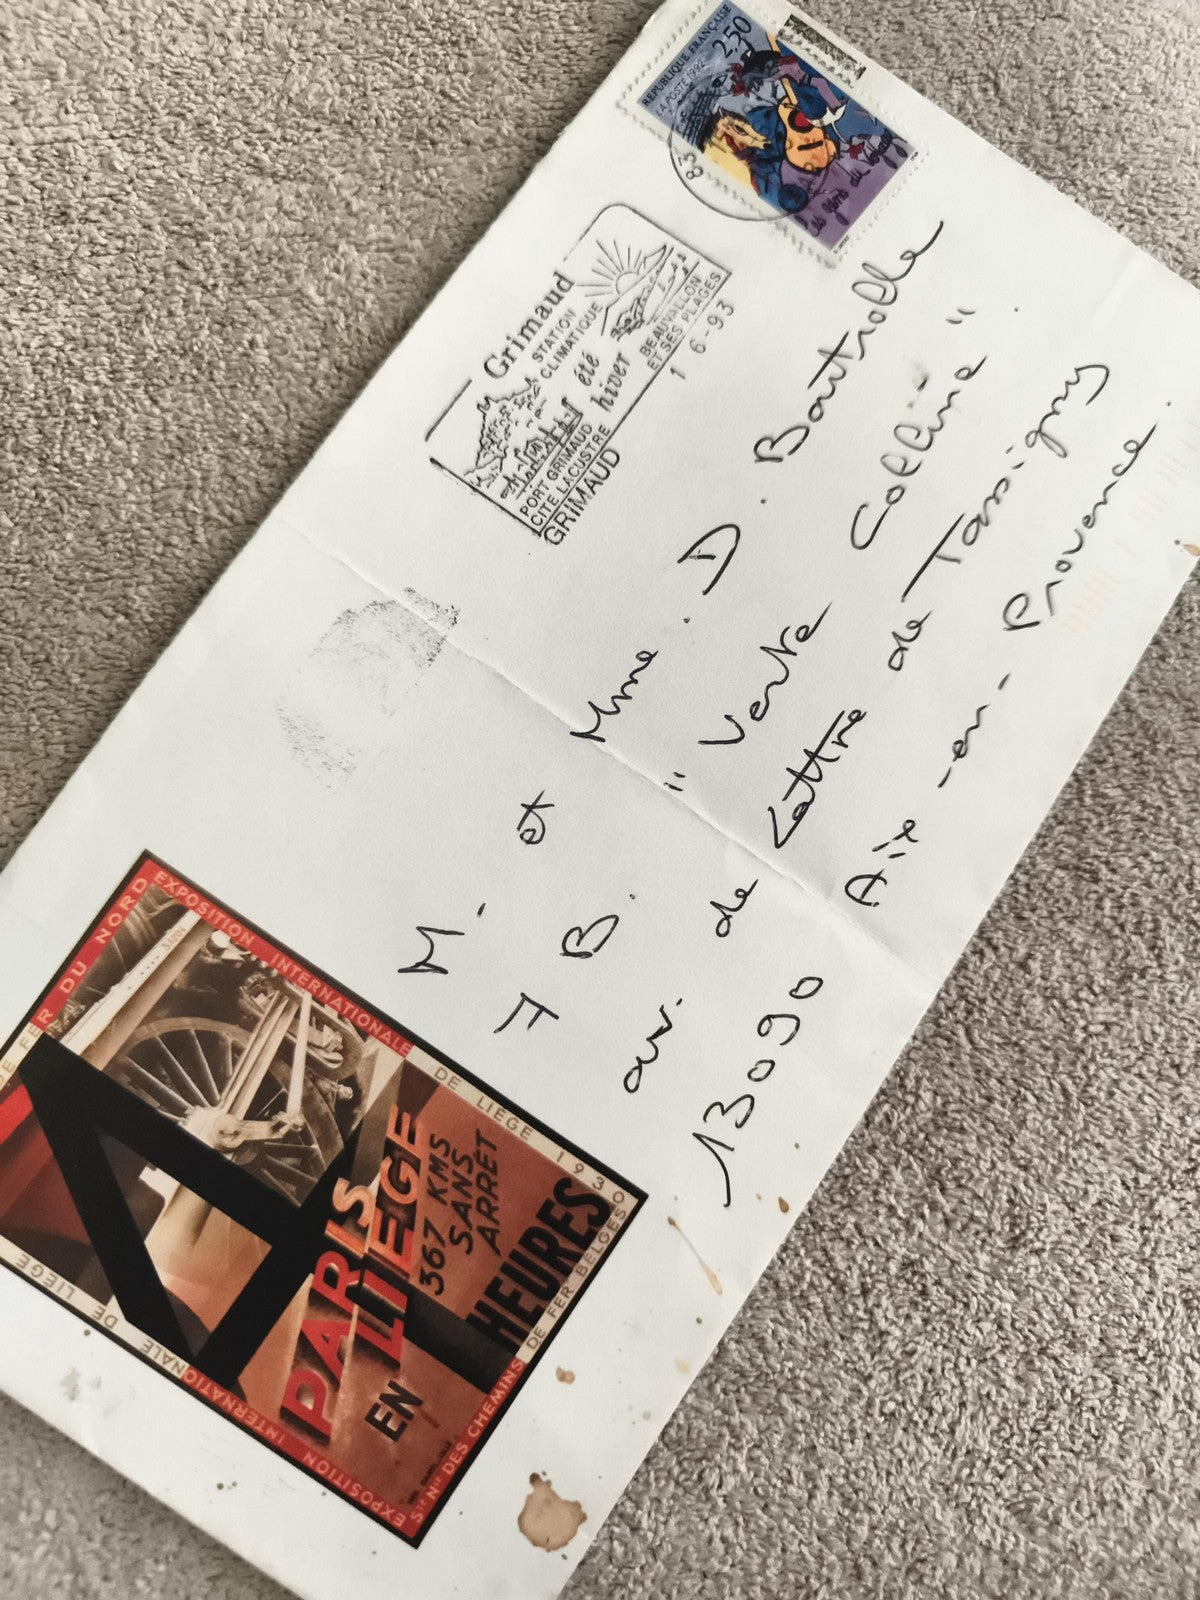 RÉPUBLIQUE FRANÇAISE
2.50
LA POSTE 1992
Les gens du voyage
83
Grimaud
STATION
CLIMATIQUE
été
hiver
PORT GRIMAUD
CITE LACUSTRE
BEAUVALLON
ET SES PLAGES
GRIMAUD
1 6-93
M. et Mme. D. Boutrolle
7 B. "Verte Colline"
av. de Lattre de Tassigny
13090 Aix-en-Provence.
EXPOSITION INTERNATIONALE DE LIEGE 1930
DE FER DU NORD
4
PARIS
LIEGE
367 KMS
SANS
ARRET
EN
HEURES
STÉ NLE DES CHEMINS DE FER BELGES
EXPOSITION INTERNATIONALE DE LIEGE